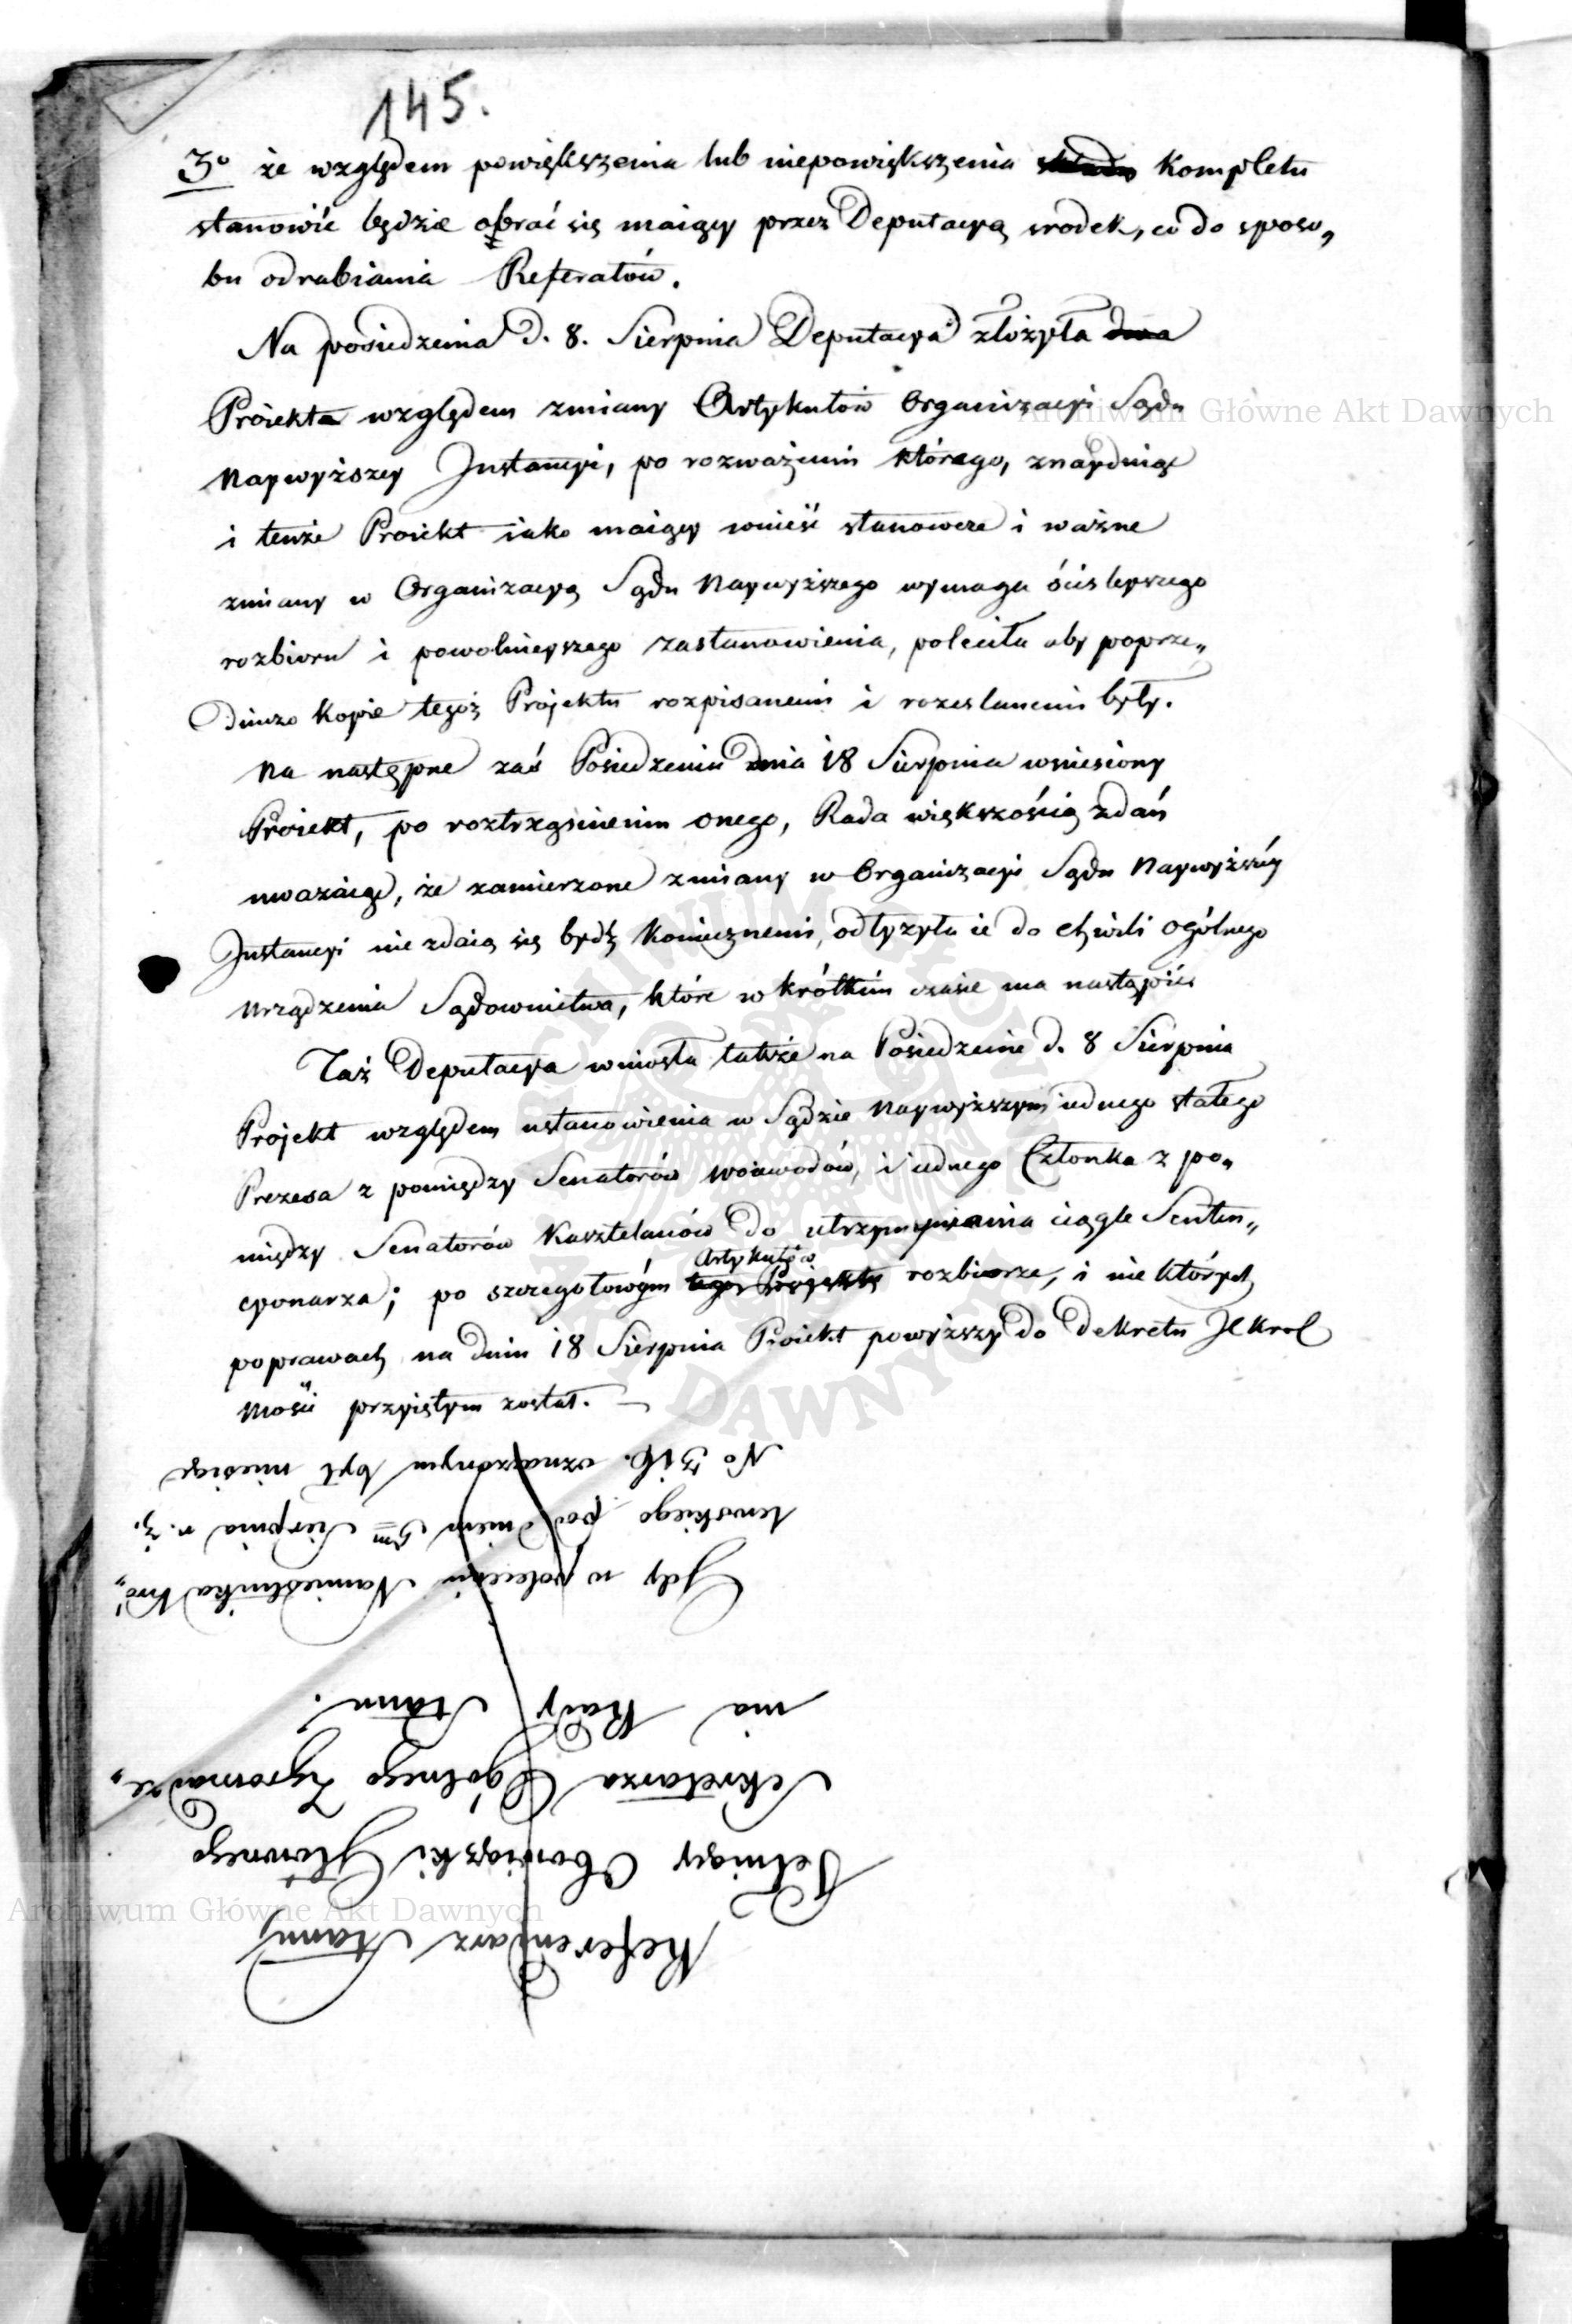 145.
3o że względem powiększenia lub niepowiększenia składu Kompletu
stanowić będzie obrać się maiący przez Deputacyą srodek, co do sposo„
bu odrabiania Referatów.
Na posiedzenia d. 8. Sierpnia Deputacya złożyła dwa
Proiekta względem zmiany Artykułów Organizacyi Sądu
Naywyższey Instancyi, po rozważeniu którego, znaydując
i tenże Proiekt iako maiący wnieść stanowcze i ważne
zmiany w Organizacyą Sądu Naywyższego wymaga ściśleyszego
rozbioru i powolnieyszego zastanowienia, poleciła aby poprze„
dniczo Kopie tegoż Projektu rozpisanemi i rozesłanemi były.
Na następne zaś Posiedzeniu dnia 18 Sierpnia wniesiony
Proiekt, po roztrząśnieniu onego, Rada większością zdań
uważaiąc, że zamierzone zmiany w Organizacyi Sądu Naywyższéy
Instancyi nie zdaią się bydź Koniecznemi, odłożyła ie do chwili ogólnego
urządzenia Sądownictwa, które w krótkim czasie ma nastąpić.
Taż Deputacya wniosła także na Posiedzenie d. 8 Sierpnia
Projekt względem ustanowienia w Sądzie Naywyższym iednego stałego
Prezesa z pomiędzy Senatorów Woiewodów, i iednego Członka z po„
między Senatorów Kasztelanów do utrzymywania ciągle Senten„
Artykułów
cyonarza; po szczegołowym tego Projektu rozbiorze, i niektórych
poprawach na dniu 18 Sierpnia Proiekt powyższy do Dekretu JKKrol
Mości przyiętym został. —
Referendarz Stanu
Pełniący Obowiązki Głównego
Sekretarza Ogólnego Zgromadze„
nia Rady Stanu.
Gdy w poleceniu Namiestnika Kró„
lewskiego pod dniem 5m Sierpnia r. z.
No 316. oznaczonym był miesiąc
Archiwum Główne Akt Dawnych
Archiwum Główne Akt Dawnych
ARCHIWUM GŁÓWNE AKT DAWNYCH